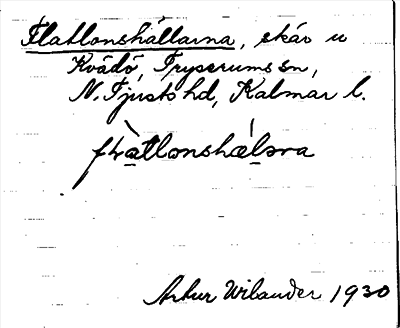 Flatlonshällarna, skär u
Kvädö, Tryserums sn,
N. Tjusts hd, Kalmar l.
flàtlonshælɔra
Artur Wilander 1930